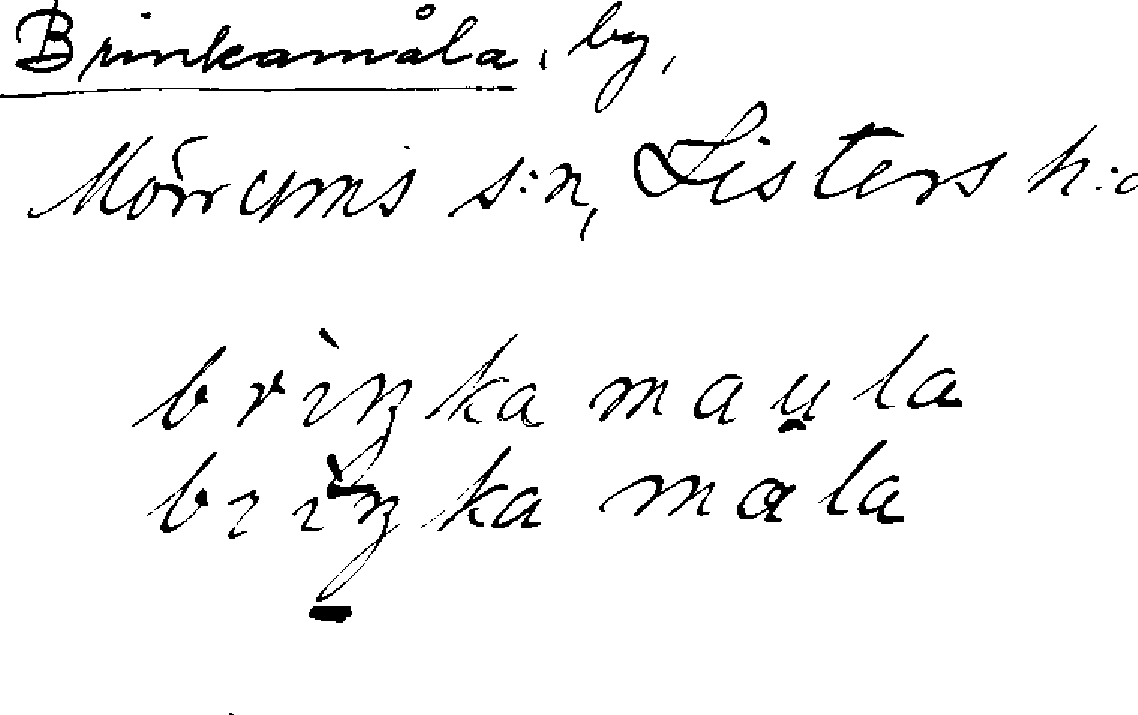 Brinkamåla, by,
Mörrums s:n, Listers h:d
brìŋka mau̯la
brìŋka mɑla